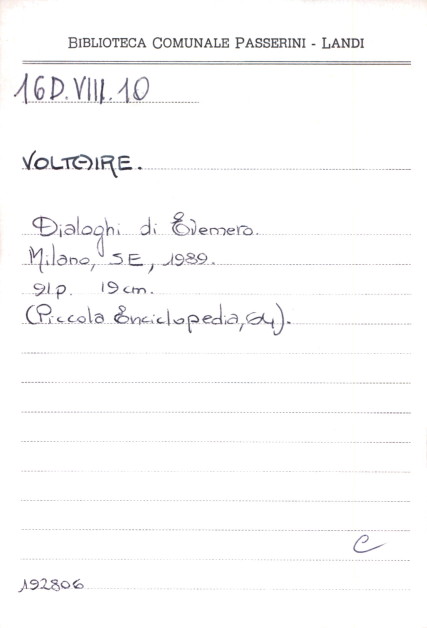 BIBLIOTECA COMUNALE PASSERINI - LANDI
16D.VIII.10
VOLTAIRE.
Dialoghi di Evemero.
Milano, SE, 1989.
91p. 19cm.
(Piccola Enciclopedia, 64).
C
192806